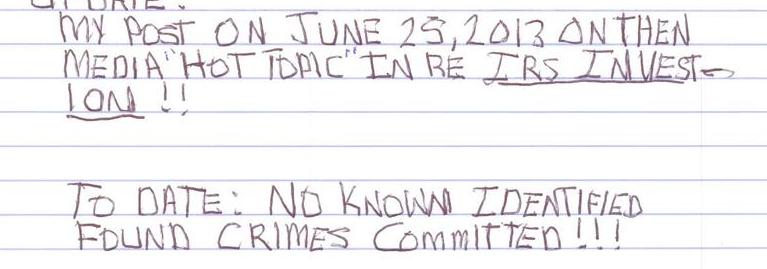 UPDATE:
MY POST ON JUNE 25, 2013 ON THEN
MEDIA "HOT TOPIC" IN RE IRS INVEST-
ION !!
TO DATE: NO KNOWN IDENTIFIED
FOUND CRIMES COMMITTED!!!